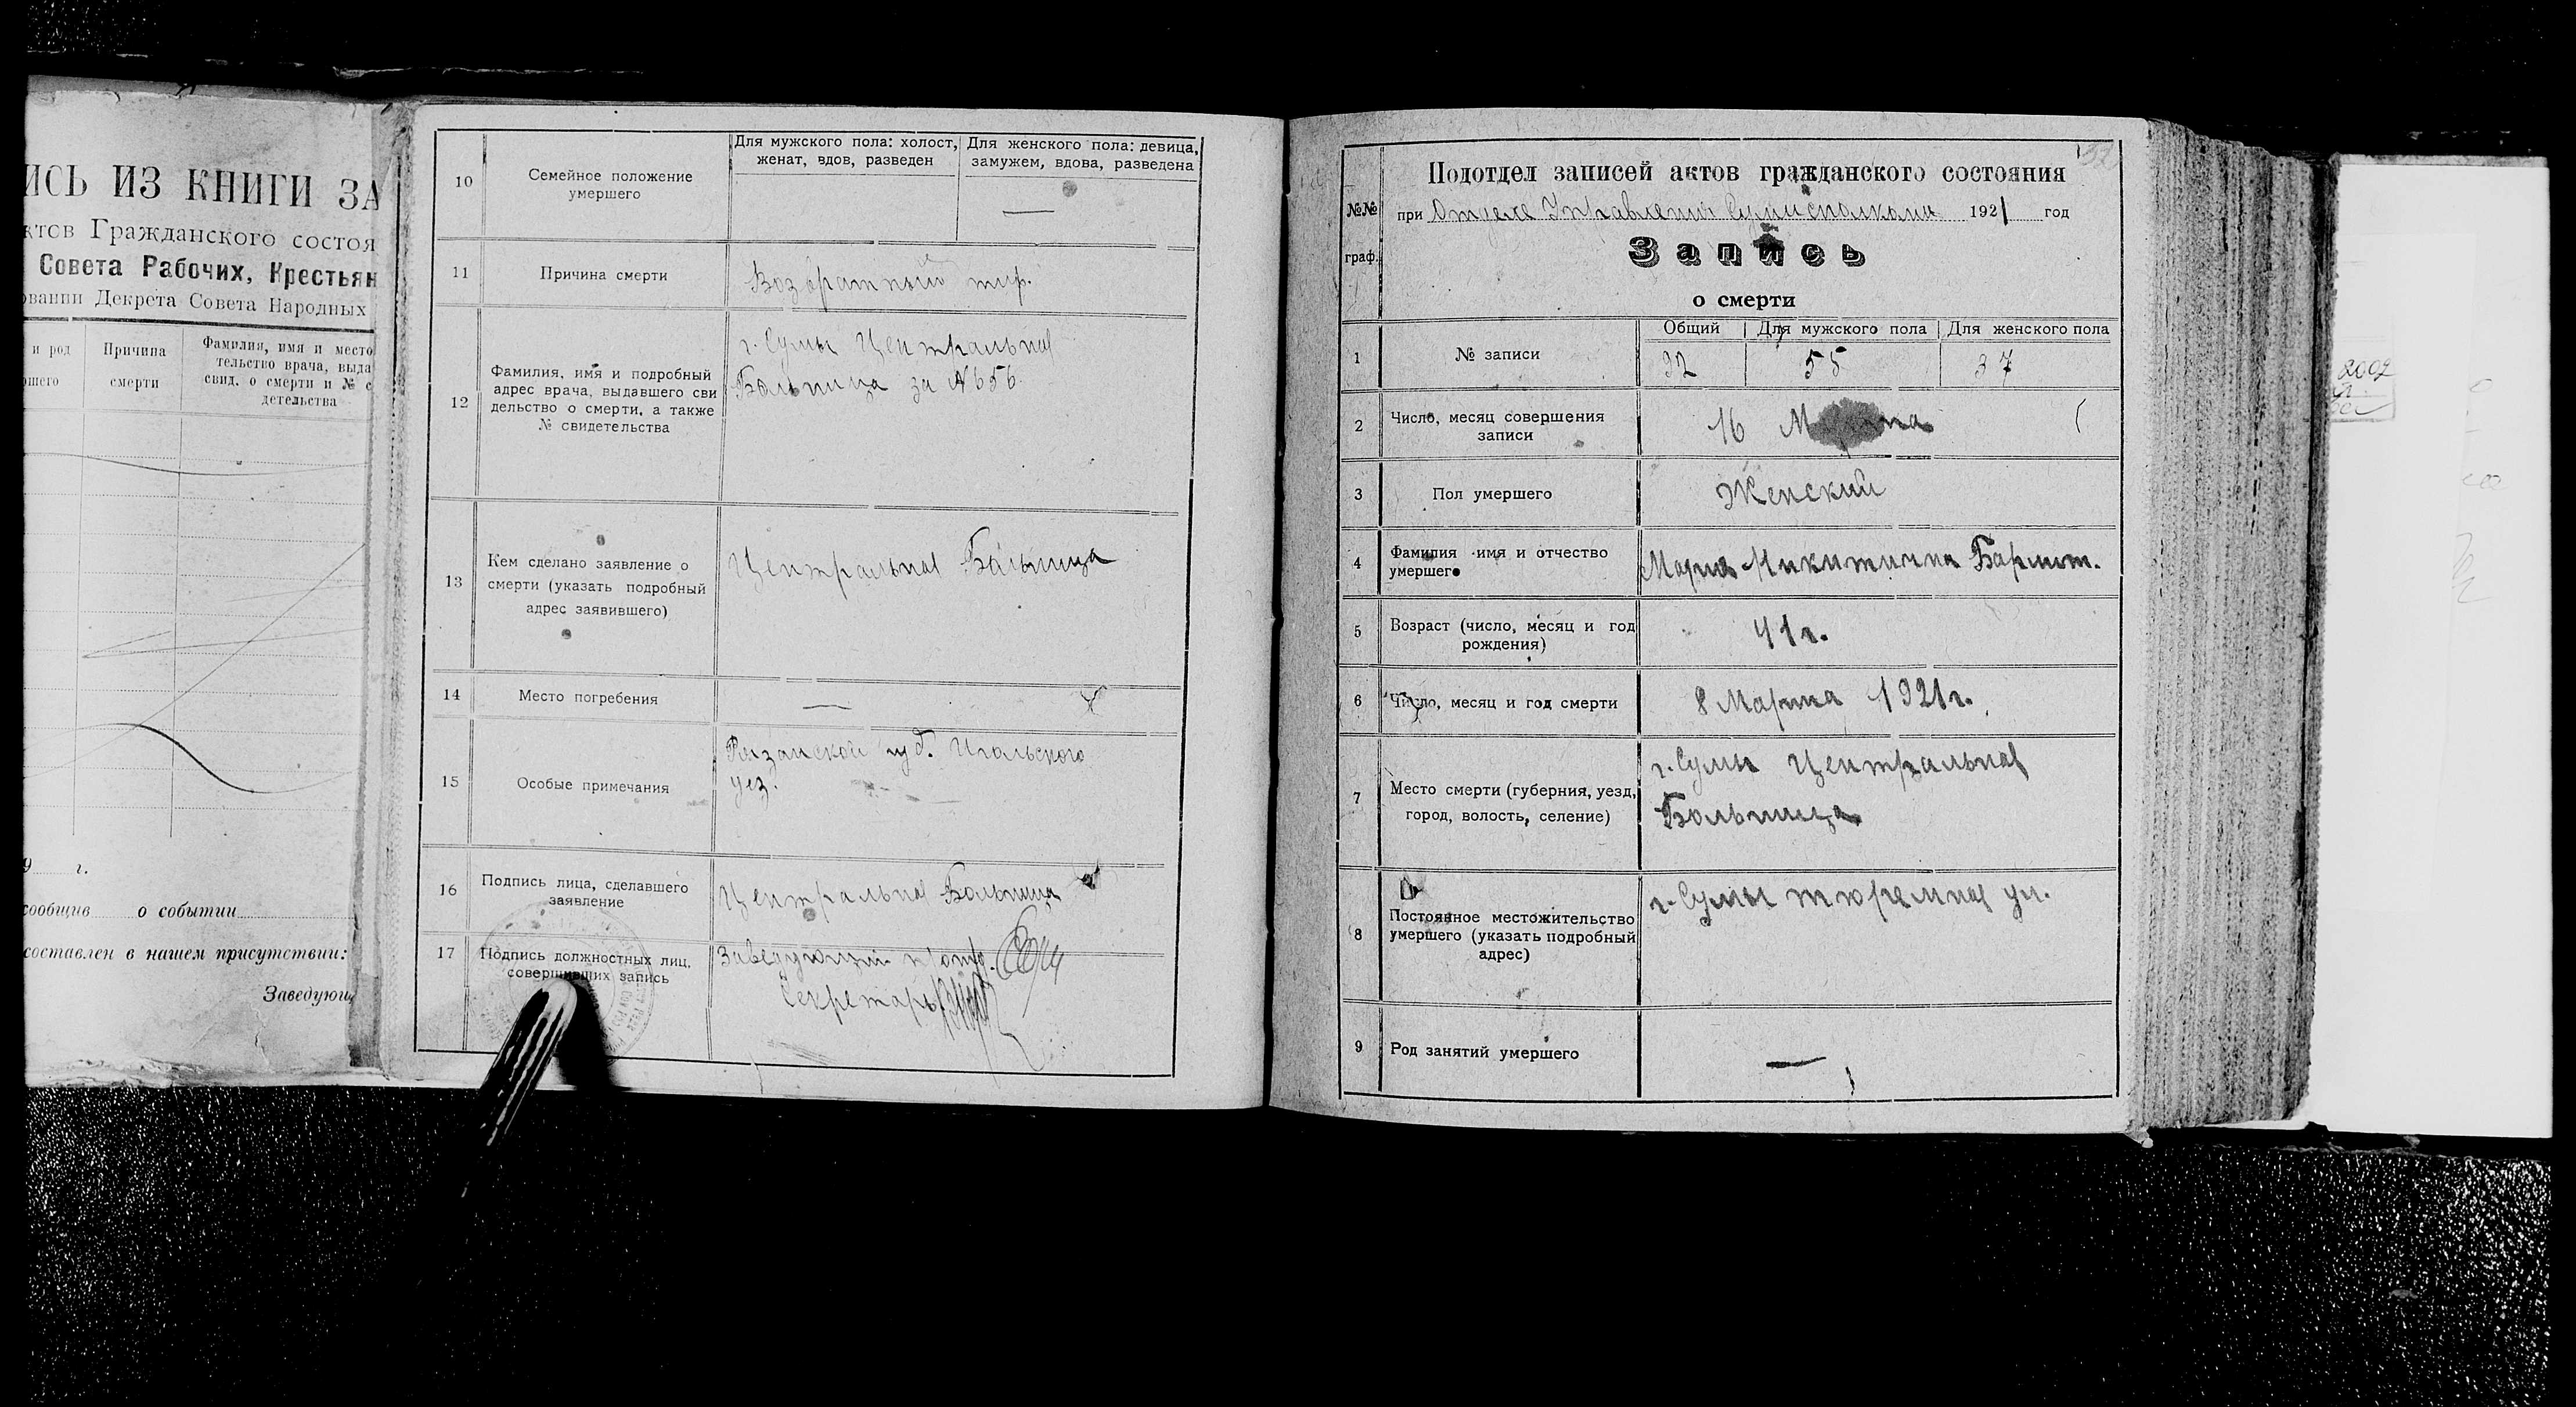 ИСЬ ИЗ КНИГИ ЗА
ктов Гражданского состоя
Совета Рабочих, Крестьян
овании Декрета Совета Народных
и род
ршего
Причина
смерти
Фамилия, имя и место
тельство врача, выда
свид. о смерти и № с
детельства
9 г.
сообщив о событии
составлен в нашем присутствии:
Заведующ
10 Семейное положение
умершего
Для мужского пола: холост,
женат, вдов, разведен
Для женского пола: девица,
замужем, вдова, разведена
—
11 Причина смерти
Возвратный тиф.
12 Фамилия, имя и подробный
адрес врача, выдавшего сви
дельство о смерти, а также
№ свидетельства
г. Сумы Центральная
Больница за № 656
13 Кем сделано заявление о
смерти (указать подробный
адрес заявившего)
Центральная Больница
14 Место погребения —
15 Особые примечания
Рязанской губ.
уез.
16 Подпись лица, сделавшего
заявление
Центральная Больница
17 Подпись должностных лиц,
совершивших запись
Заведующий п/отд.
Секретарь
№№
граф.
Подотдел записей актов гражданского состояния
при Отделе Управления Сумисполкома 1921 год
Запись
о смерти
1 № записи
Общий Для мужского пола Для женского пола
92 55 37
2 Число, месяц совершения
записи
16 Марта
3 Пол умершего Женский
4 Фамилия имя и отчество
умершего
Мария Никитична
5 Возраст (число, месяц и год
рождения)
41 г.
6 Число, месяц и год смерти 8 Марта 1921 г.
7 Место смерти (губерния, уезд,
город, волость, селение)
г. Сумы Центральная
Больница
8 Постоянное местожительство
умершего (указать подробный
адрес)
г. Сумы тюремная ул.
9 Род занятий умершего —
2002